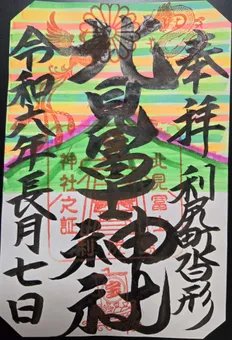 奉拝
利尻町沓形
北見冨士神社
北見冨
神社之証
令和六年長月七日